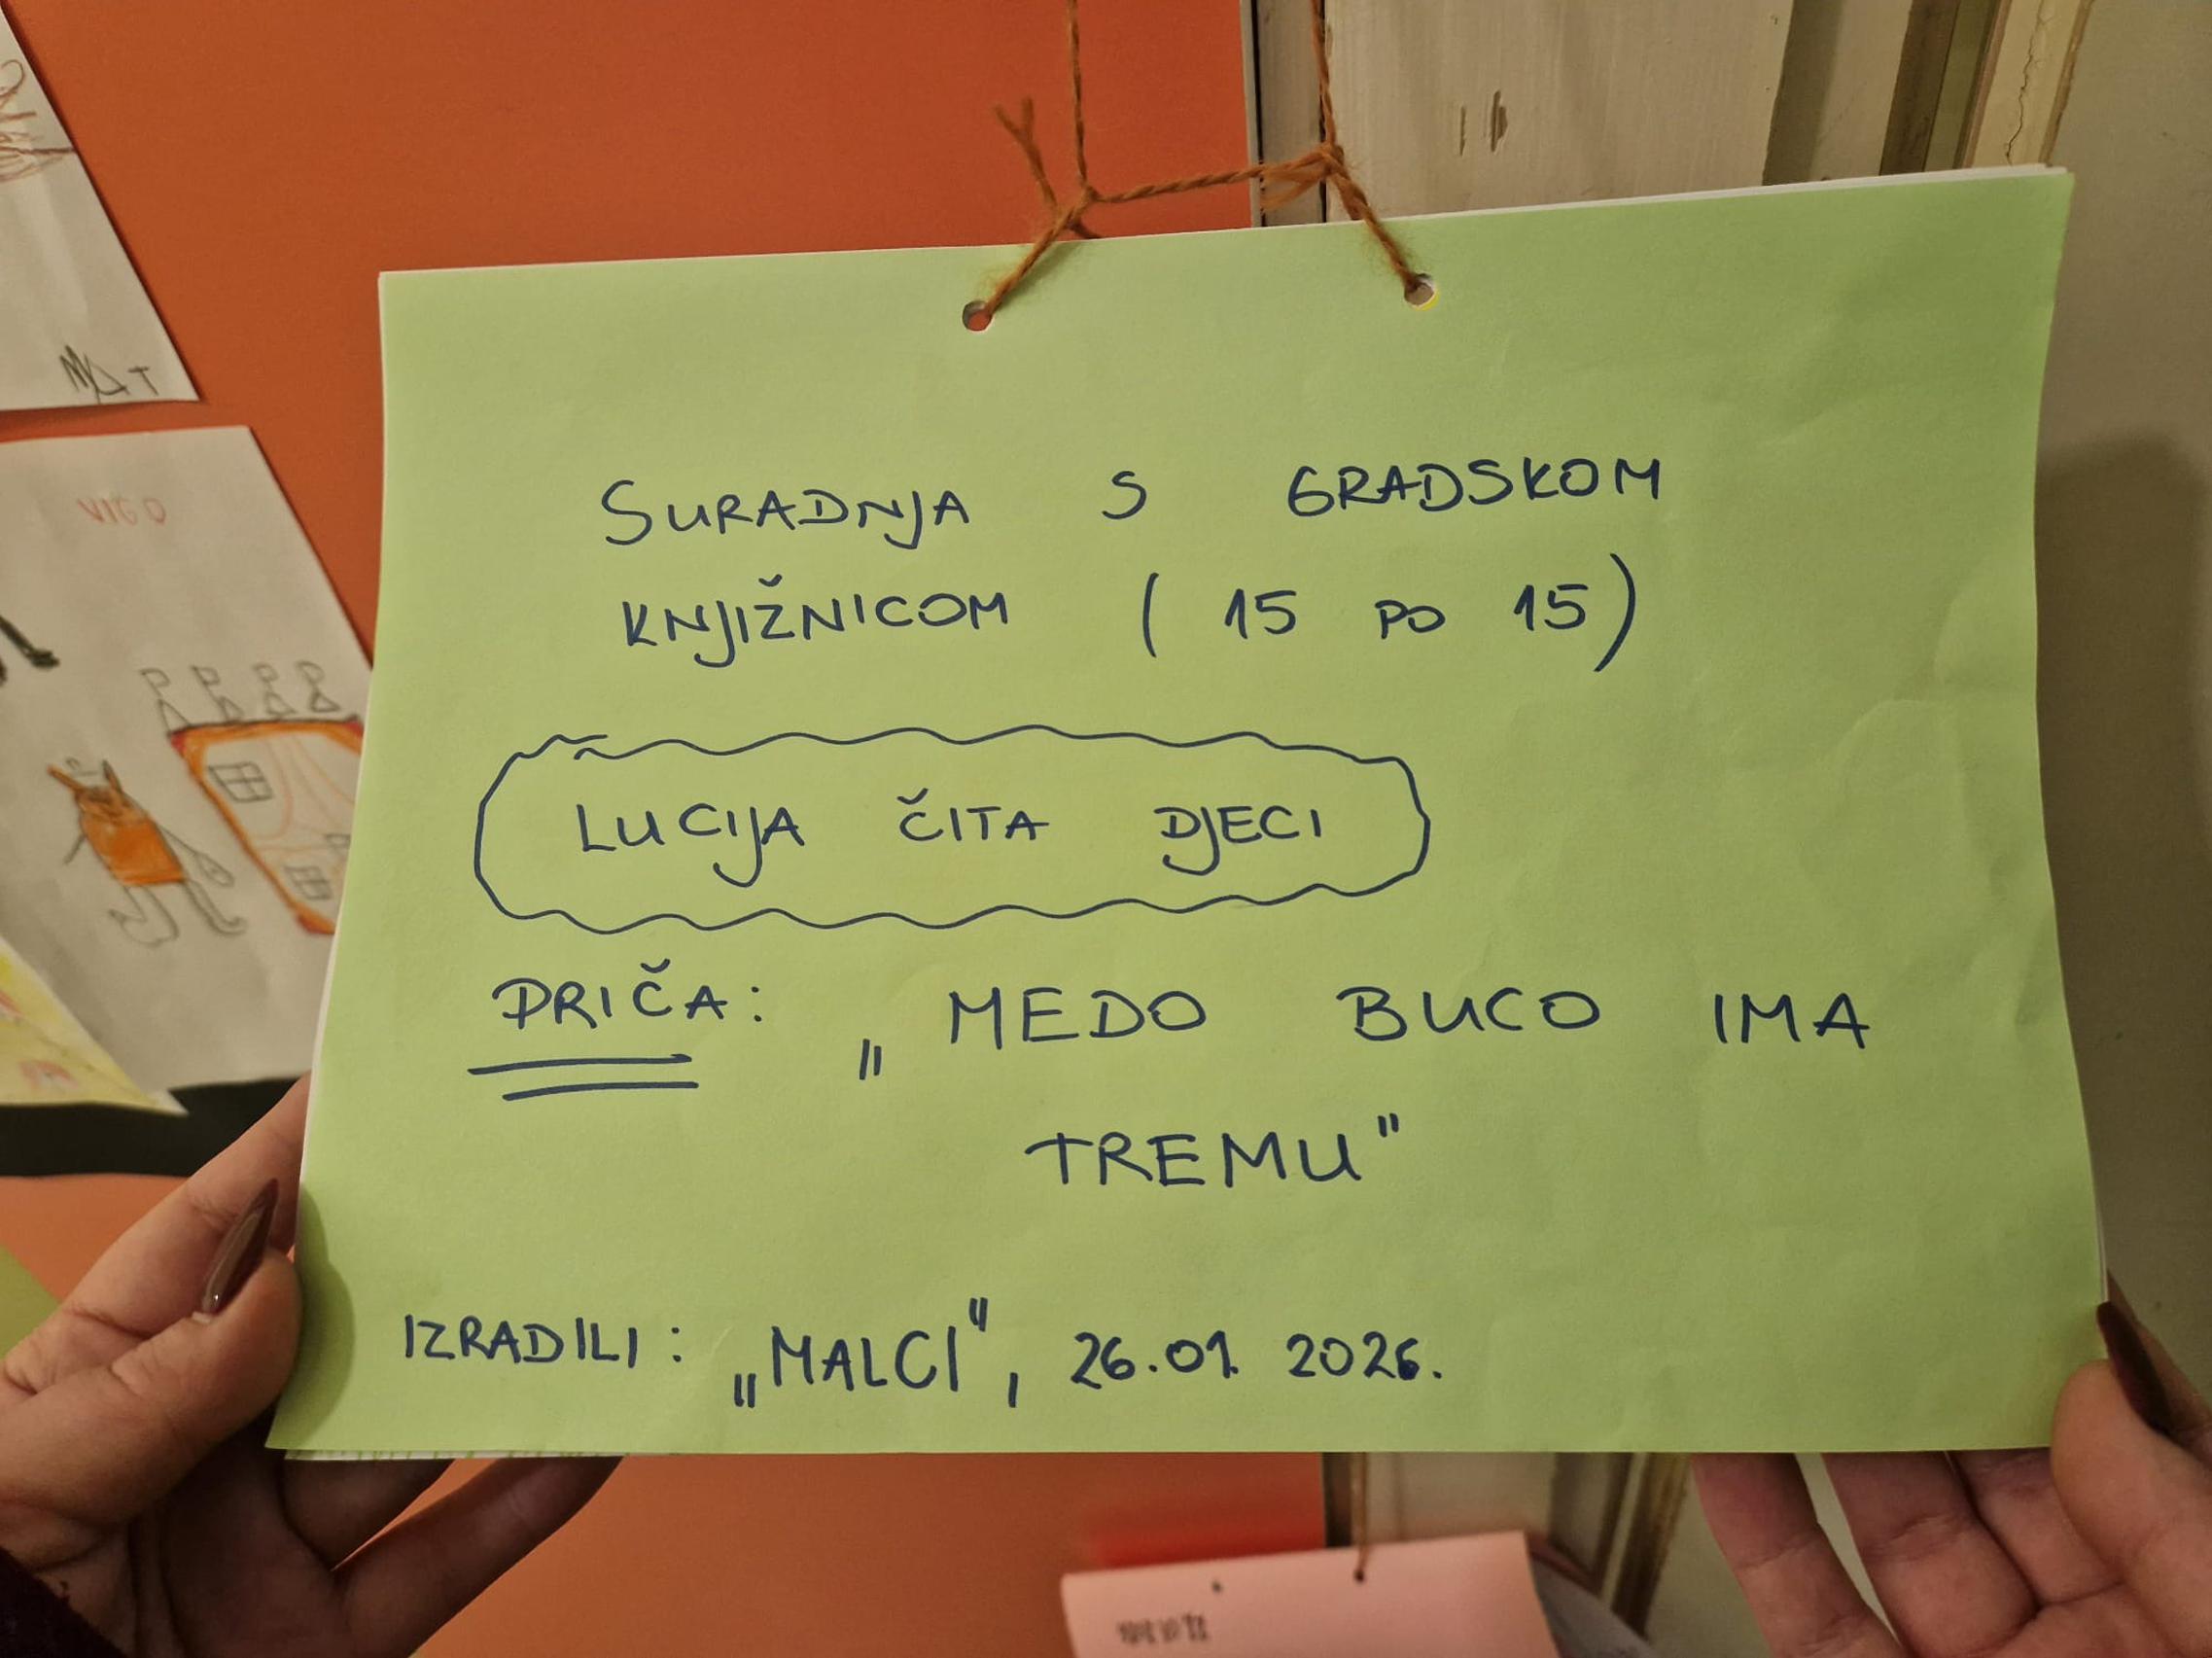 MAT
VIGO
SURADNJA S GRADSKOM
KNJIŽNICOM ( 15 PO 15)
LUCIJA ČITA DJECI
PRIČA: „MEDO BUCO IMA
TREMU"
IZRADILI: „MALCI", 26.01. 2026.